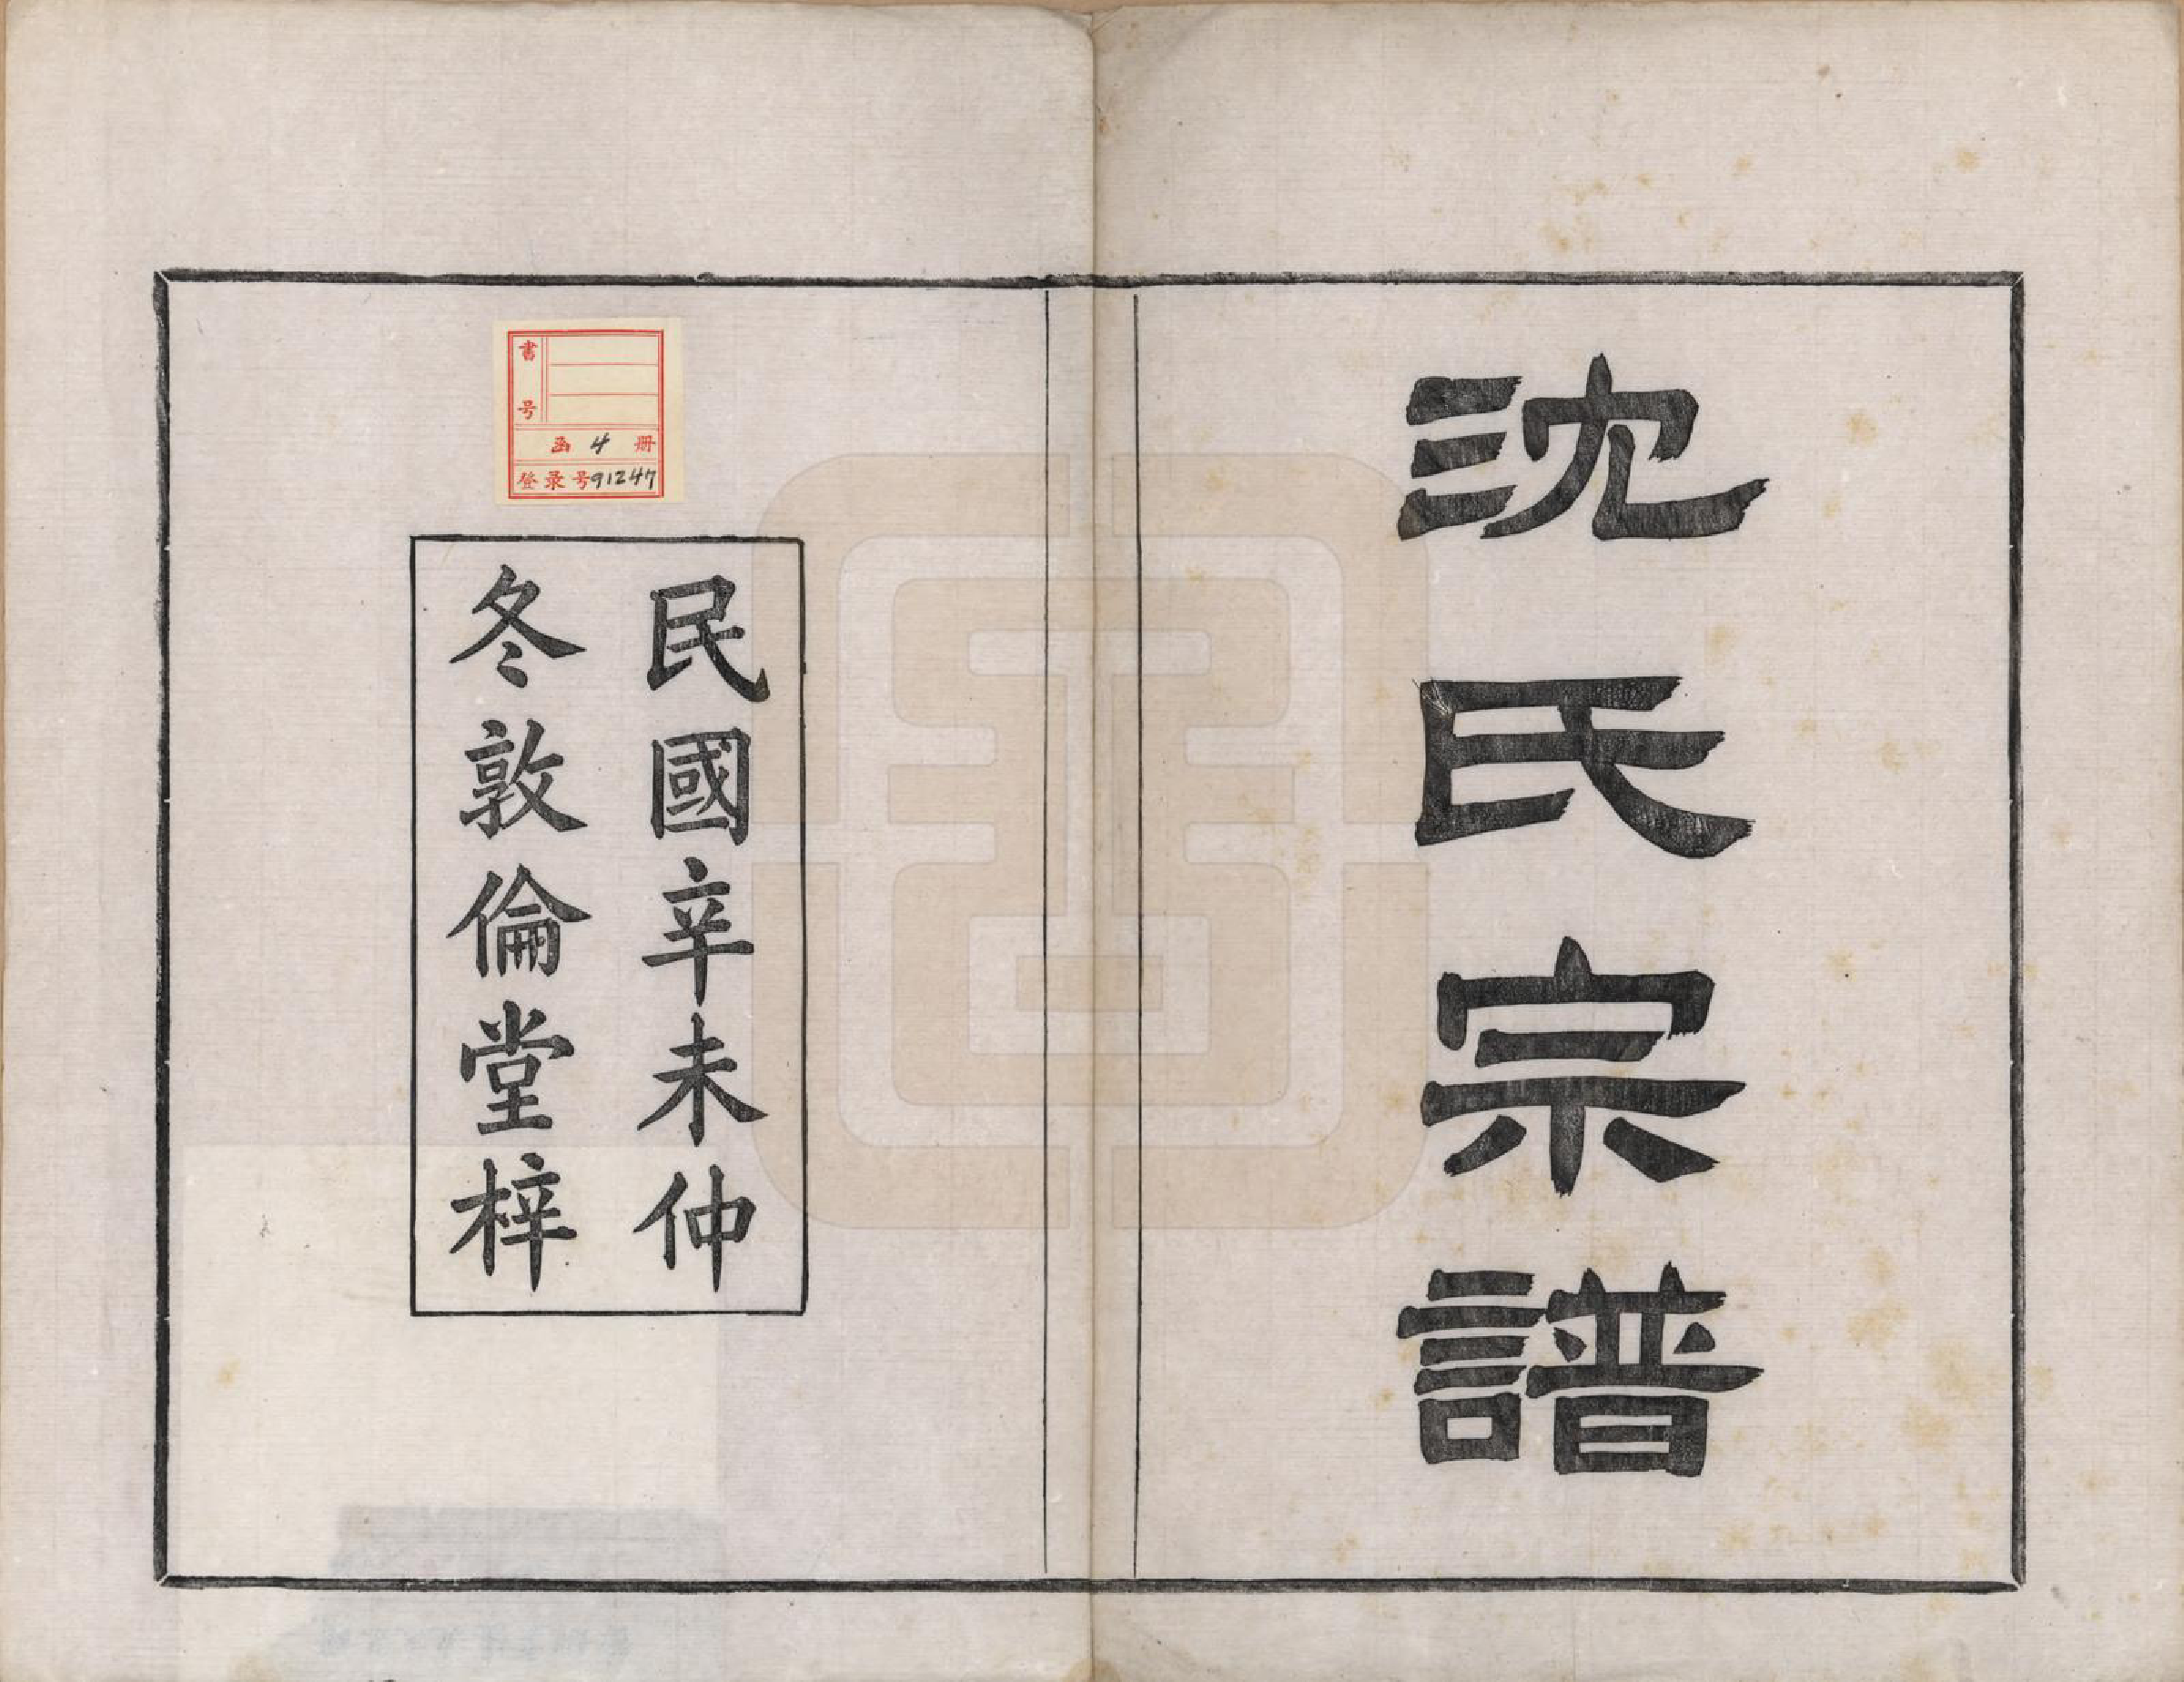 沈氏宗譜
民國辛未仲
冬敦倫堂梓
書号
函 4 册
登录号91247